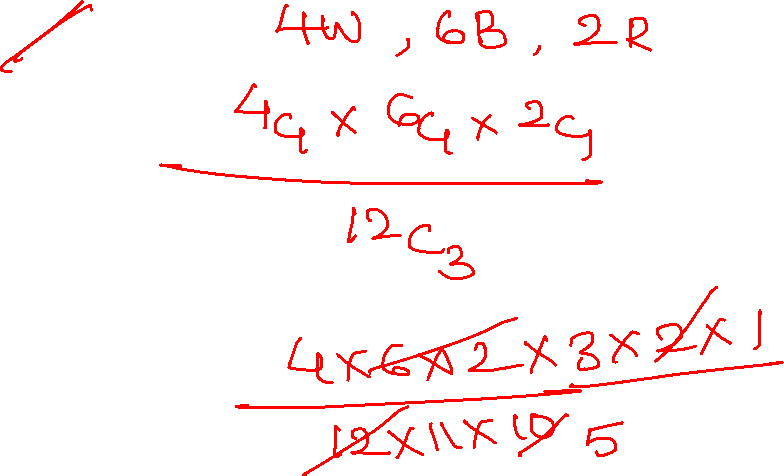 4W, 6B, 2R
4C1 × 6C1 × 2C1
12C3
4×6×2×3×2×1
12×11×10 5